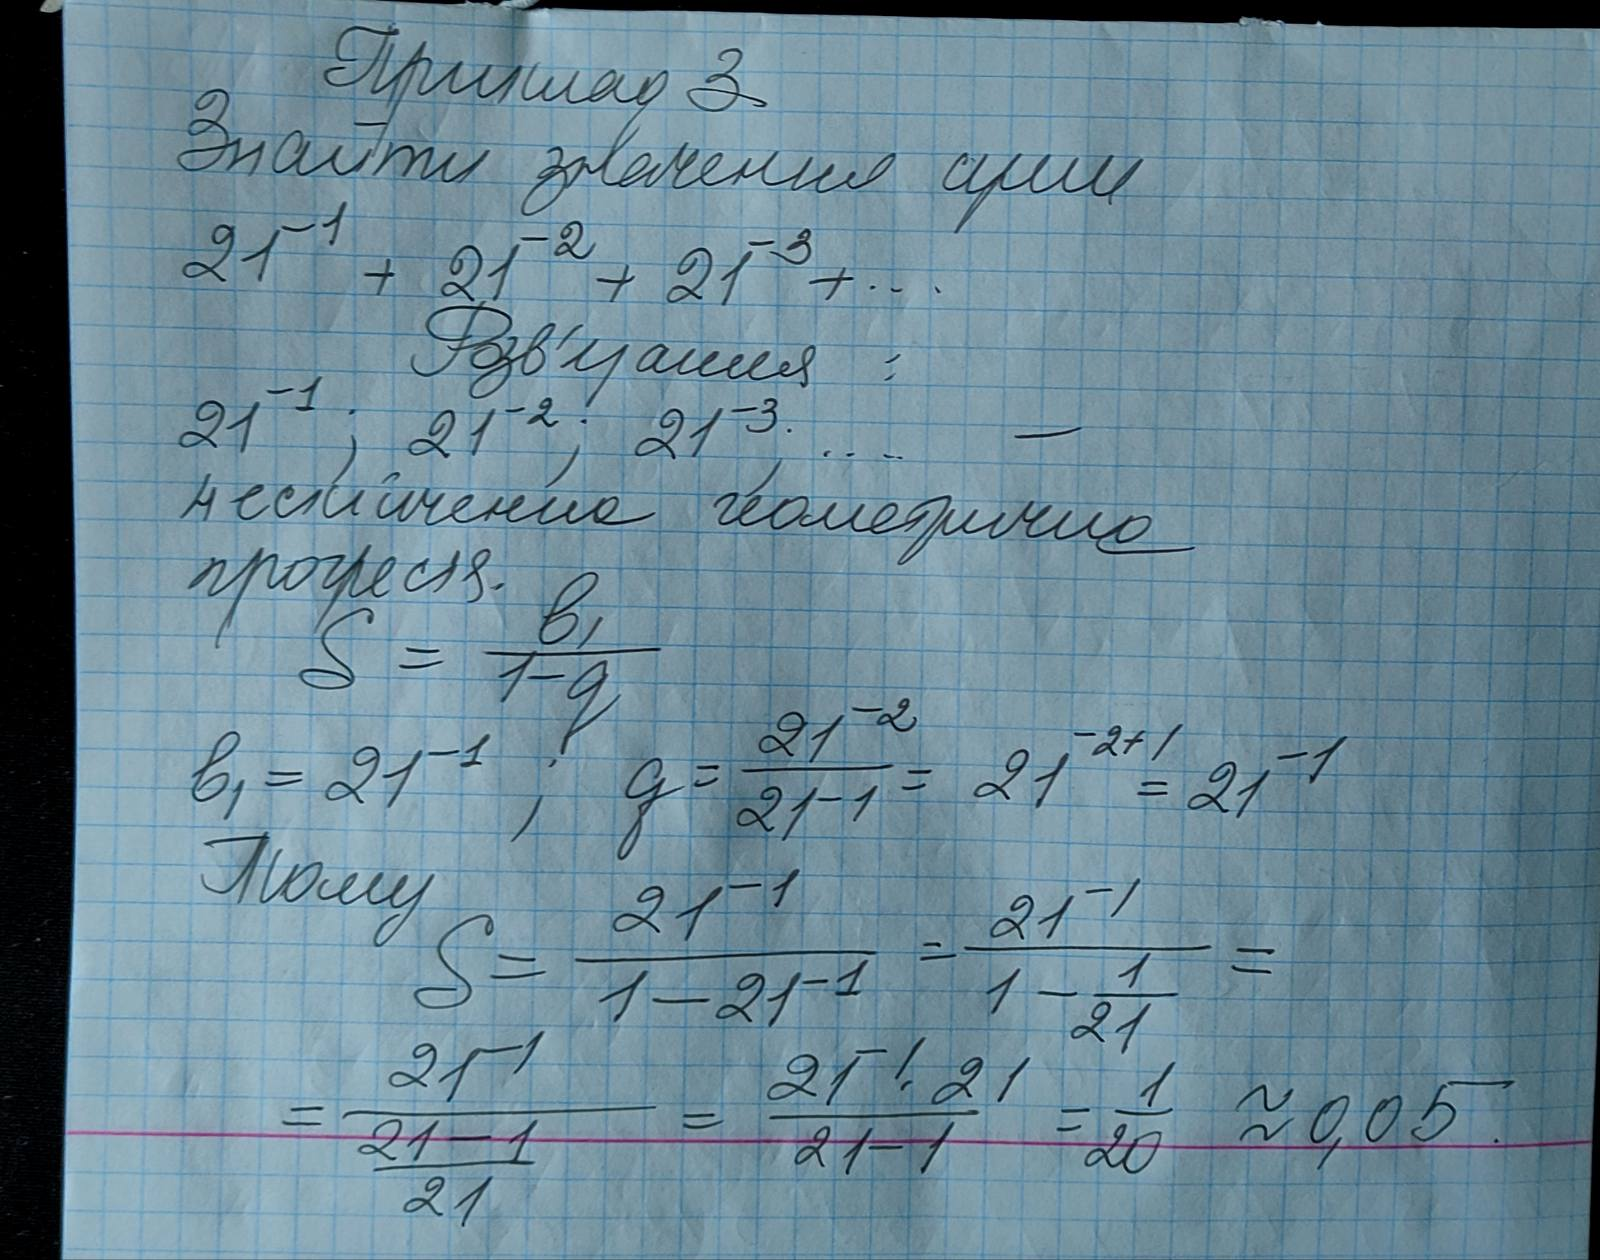 Приклад 3
Знайти значення суми
21⁻¹ + 21⁻² + 21⁻³ + ...
Розв'язання :
21⁻¹; 21⁻²; 21⁻³; .... —
нескінченна геометрична
прогресія.
S = b₁/(1-q)
b₁ = 21⁻¹ ; q = 21⁻²/21⁻¹ = 21⁻²⁺¹ = 21⁻¹
Тому
S = 21⁻¹/(1-21⁻¹) = 21⁻¹/(1 - 1/21) =
= 21⁻¹/((21-1)/21) = (21⁻¹ · 21)/(21-1) = 1/20 ≈ 0,05.